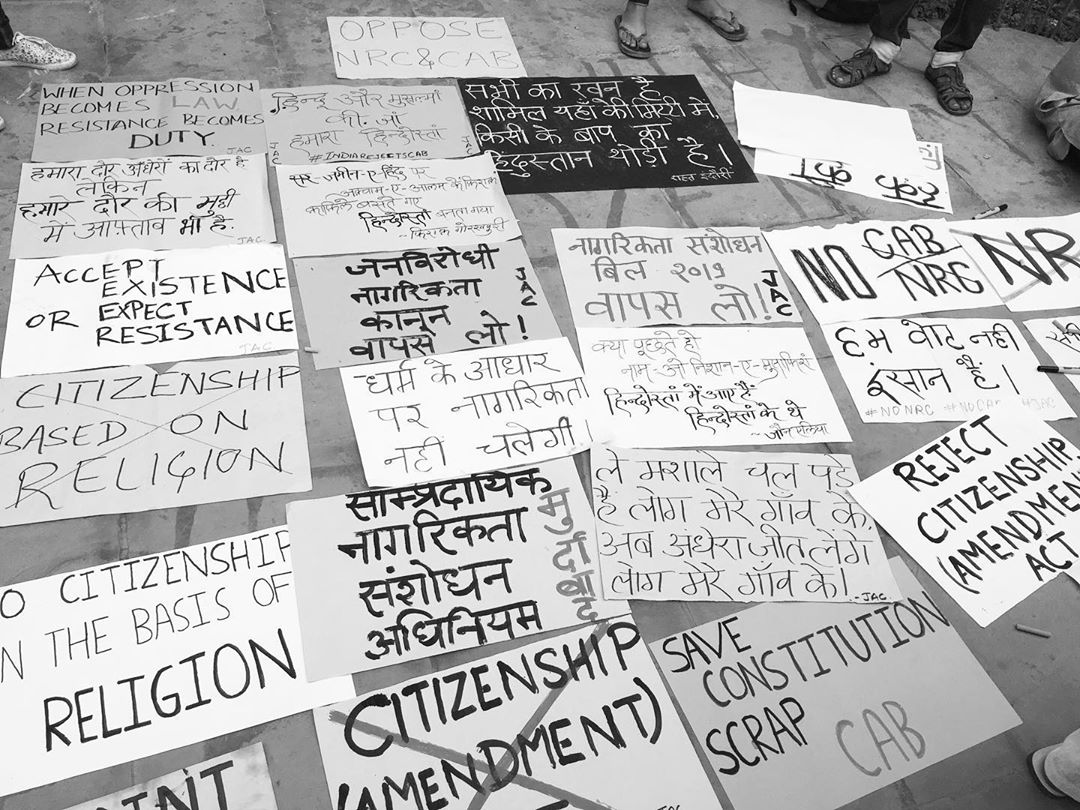 OPPOSE
NRC & CAB
WHEN OPPRESSION
BECOMES LAW
RESISTANCE BECOMES
DUTY.
JAC
हिन्दू और मुसलमां
की जां
हमारा हिन्दोस्तां
#INDIAREJECTSCAB
JAC
सभी का खून है
शामिल यहाँ की मिट्टी में,
किसी के बाप का
हिंदुस्तान थोड़ी है।
राहत इंदौरी
हमारा दौर अंधेरों का दौर है
लेकिन
हमारे दौर की मुट्ठी
में आफ्ताब भी है.
JAC
सर-ज़मीन-ए-हिंद पर
अक़्वाम-ए-आलम के फ़िराक़
क़ाफ़िले बसते गए
हिन्दोस्तां बनता गया
- फ़िराक़ गोरखपुरी
ACCEPT
EXISTENCE
OR EXPECT
RESISTANCE
JAC
जनविरोधी
नागरिकता
कानून
वापस लो!
JAC
नागरिकता संशोधन
बिल २०१९
वापस लो!
JAC
NO CAB
NRC
NR
CITIZENSHIP
BASED ON
RELIGION
धर्म के आधार
पर नागरिकता
नहीं चलेगी!
क्या पूछते हो
नाम-ओ-निशान-ए-मुसाफिरां
हिन्दोस्तां में आए हैं
हिन्दोस्तां के थे
- जौन एलिया
हम वोट नहीं
इंसान हैं।
#NONRC #NOCAB #JAC
साम्प्रदायिक
नागरिकता
संशोधन
अधिनियम
मुर्दाबाद
ले मशाले चल पड़े
है लोग मेरे गाँव के,
अब अंधेरा जीत लेंगे
लोग मेरे गाँव के।
- JAC
REJECT
CITIZENSHIP
(AMENDMEN
ACT
O CITIZENSHIP
N THE BASIS OF
RELIGION
CITIZENSHIP
(AMENDMENT)
JAC
SAVE
CONSTITUTION
SCRAP CAB